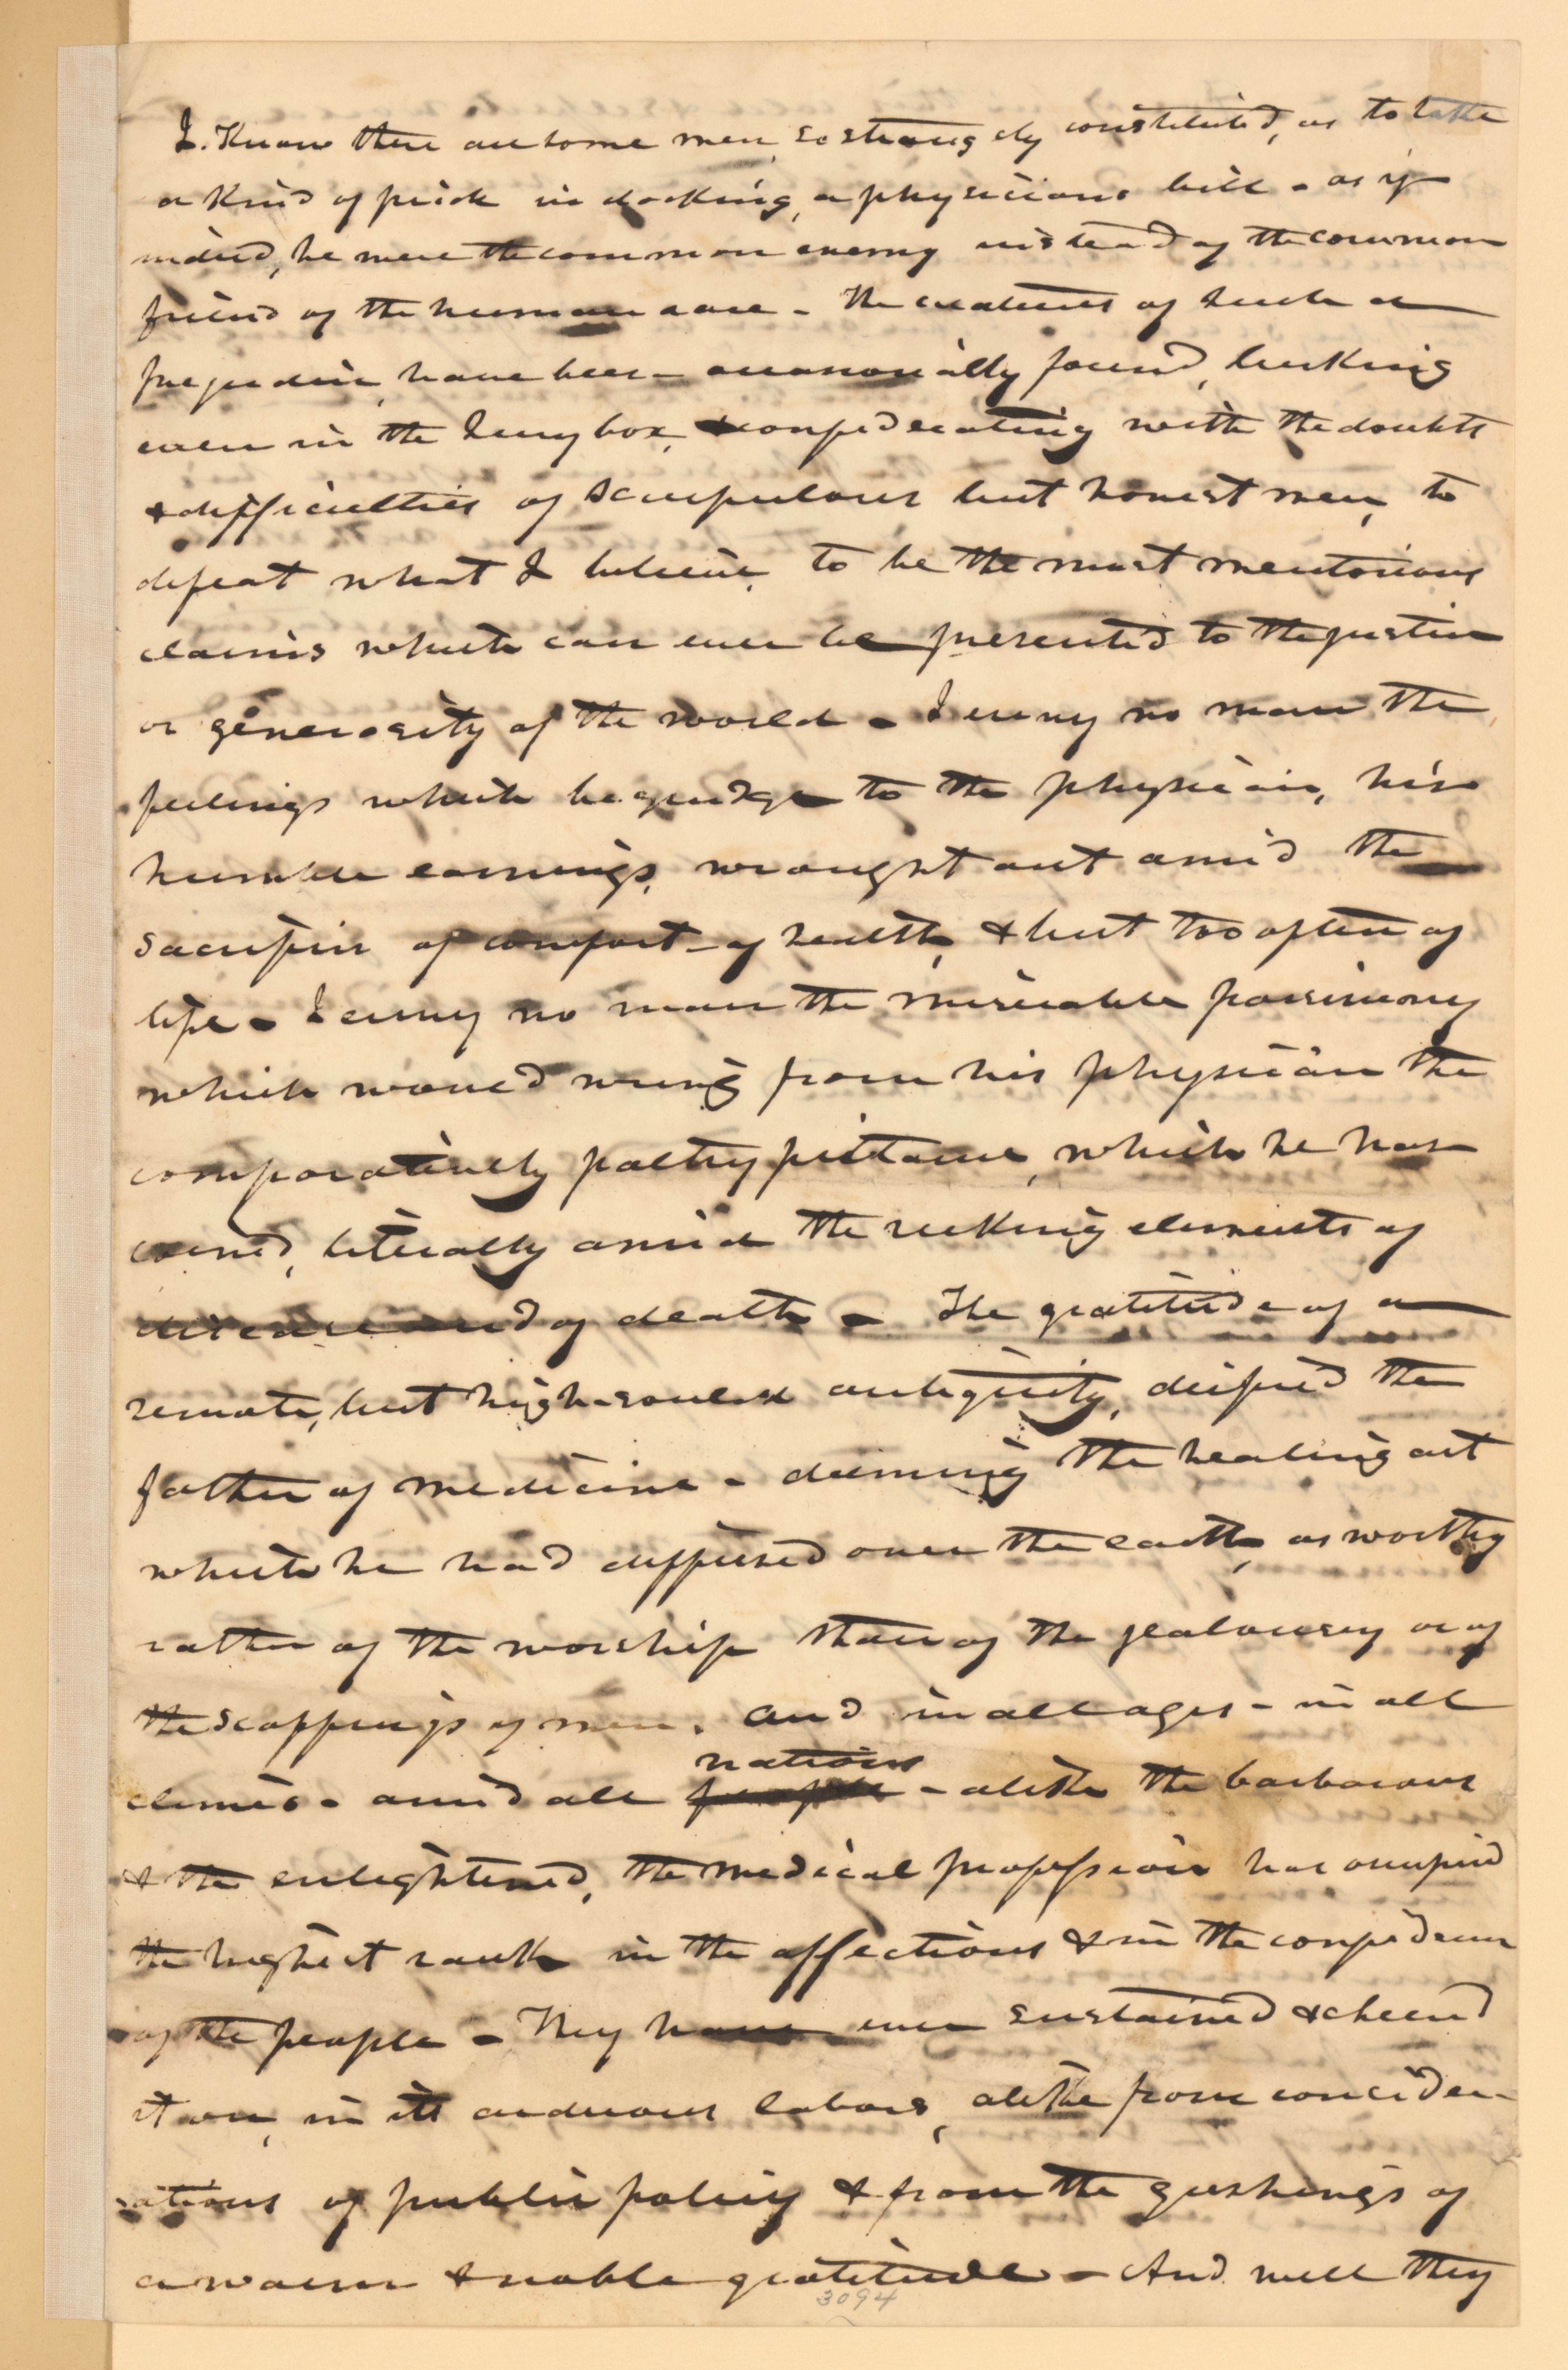 I Know there are some men, so strangely constituted, as to take
a kind of pride in docking, a physicians bill - as if
indeed, he were the common enemy instead of the common
friend of the human race - The creatures of such a
prejudice, have been - occasionally found, lurking
even in the Jury box, confederating with the doubts
& difficulties of scrupulous but honest men, to
defeat what I believe, to be the most meritorious
claims which can ever be presented to the justice
or generosity of the world - I envy no man the
feelings which begrudge to the physician, his
humble earnings, wrought out amid the
sacrifice of comfort - of health, & but too often of
life - I envy no man the miserable parsimony
which would wring from his physician the
comparatively paltry pittance, which he has
earned, literally amid the reeking elements of
disease and of death - The gratitude of a
remote, but high-souled antiquity, deified the
father of medicine - deeming the healing art
which he had diffused over the earth, as worthy
rather of the worship than of the jealousy or of
the scoffings of men. And in all ages - in all
climes - amid all people nations - alike the barbarous
& the enlightened, the medical profession has occupied
the highest rank in the affections & in the confidence
of the people - They have ever sustained & cheered
it on, in its arduous labors, alike from consider-
ations of public policy & from the gushings of
a warm & noble gratitude - And well they
3094